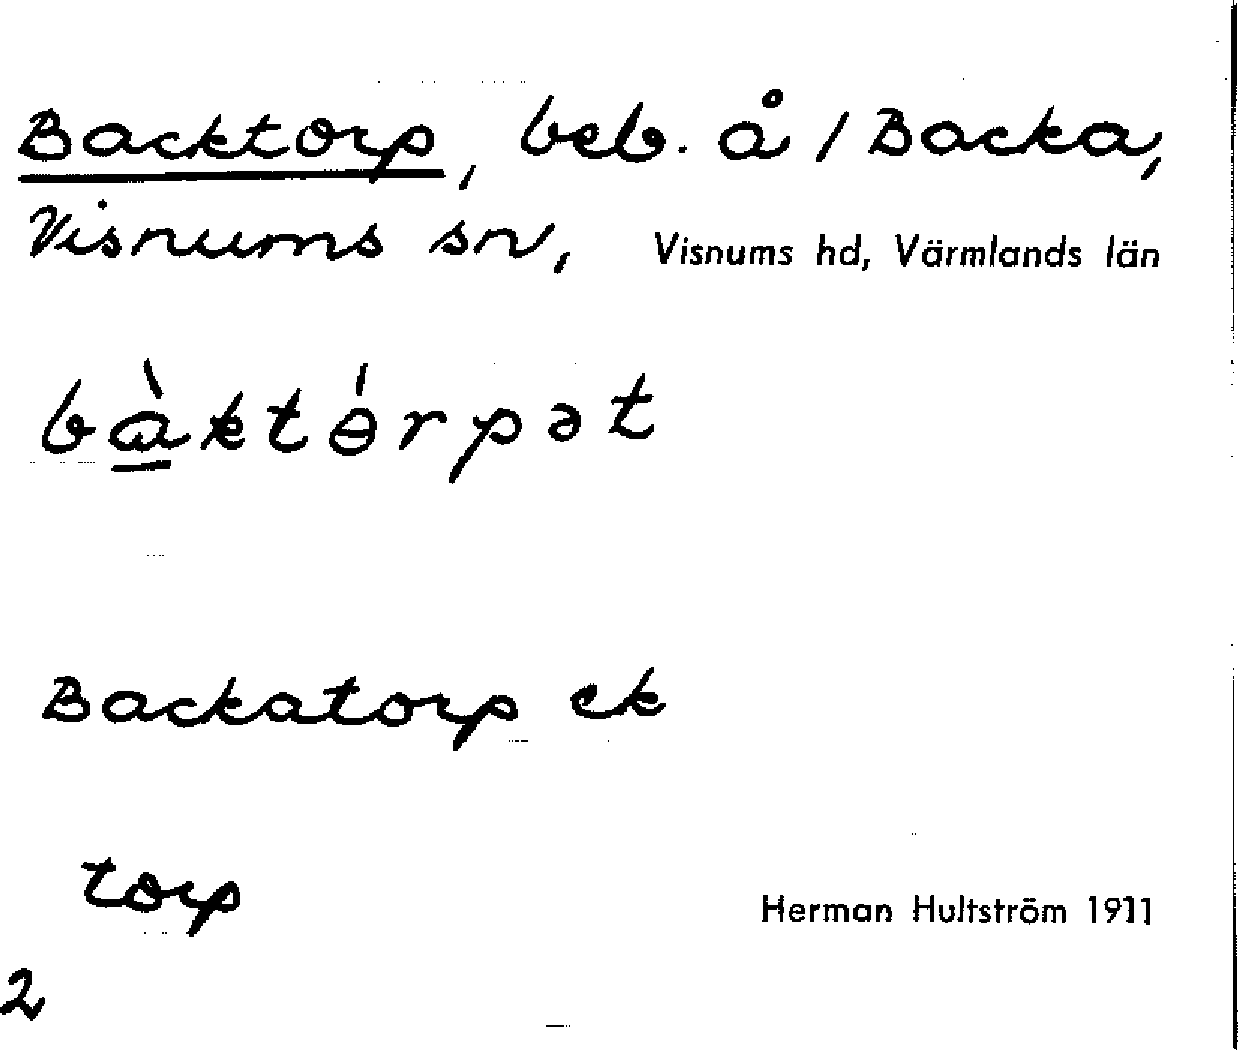 Backtorp, beb. å 1 Backa,
Visnums sn, Visnums hd, Värmlands län
bàktɵ́rpət
Backatorp ek
torp
Herman Hultström 1911
2